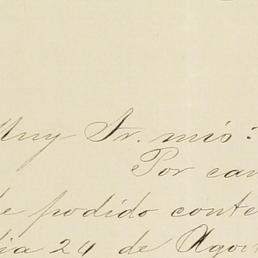 Muy Sr. mio:
Por cau
he podido conte
dia 24 de Agos